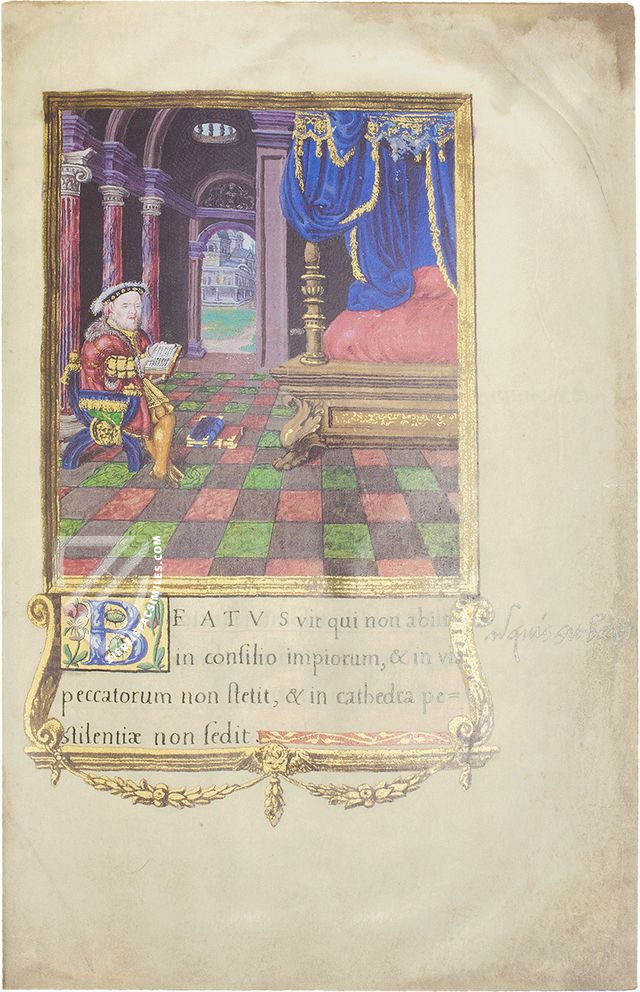 BEATVS vir qui non abiit
in consilio impiorum, & in via
peccatorum non stetit, & in cathedra pe=
stilentiæ non sedit.
quis
FACSIMILES.COM